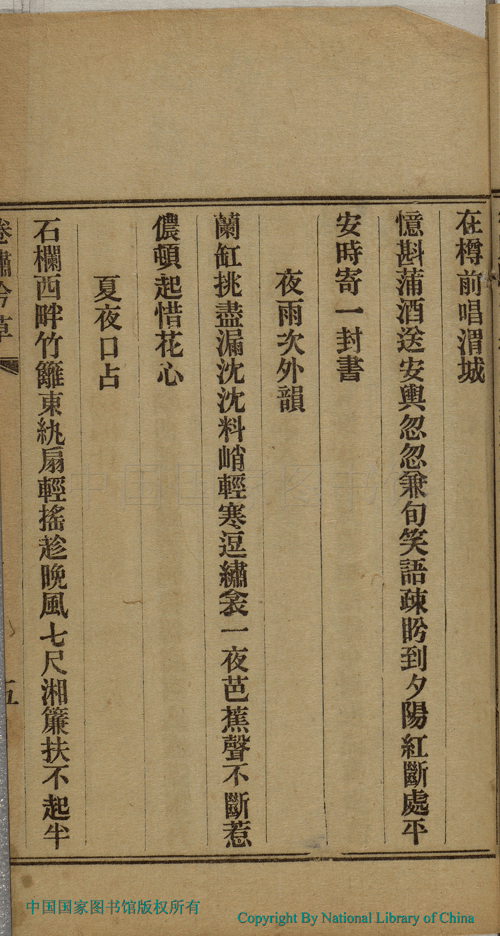 在樽前唱渭城
憶斟蒲酒送安輿忽忽兼旬笑語疎盻到夕陽紅斷處平
安時寄一封書
夜雨次外韻
蘭缸挑盡漏沈沈料峭輕寒逗繡衾一夜芭蕉聲不斷惹
儂頓起惜花心
夏夜口占
石欄西畔竹籬東紈扇輕搖趁晚風七尺湘簾扶不起半
卷繡吟草
五
中国国家图书馆版权所有
Copyright By National Library of China